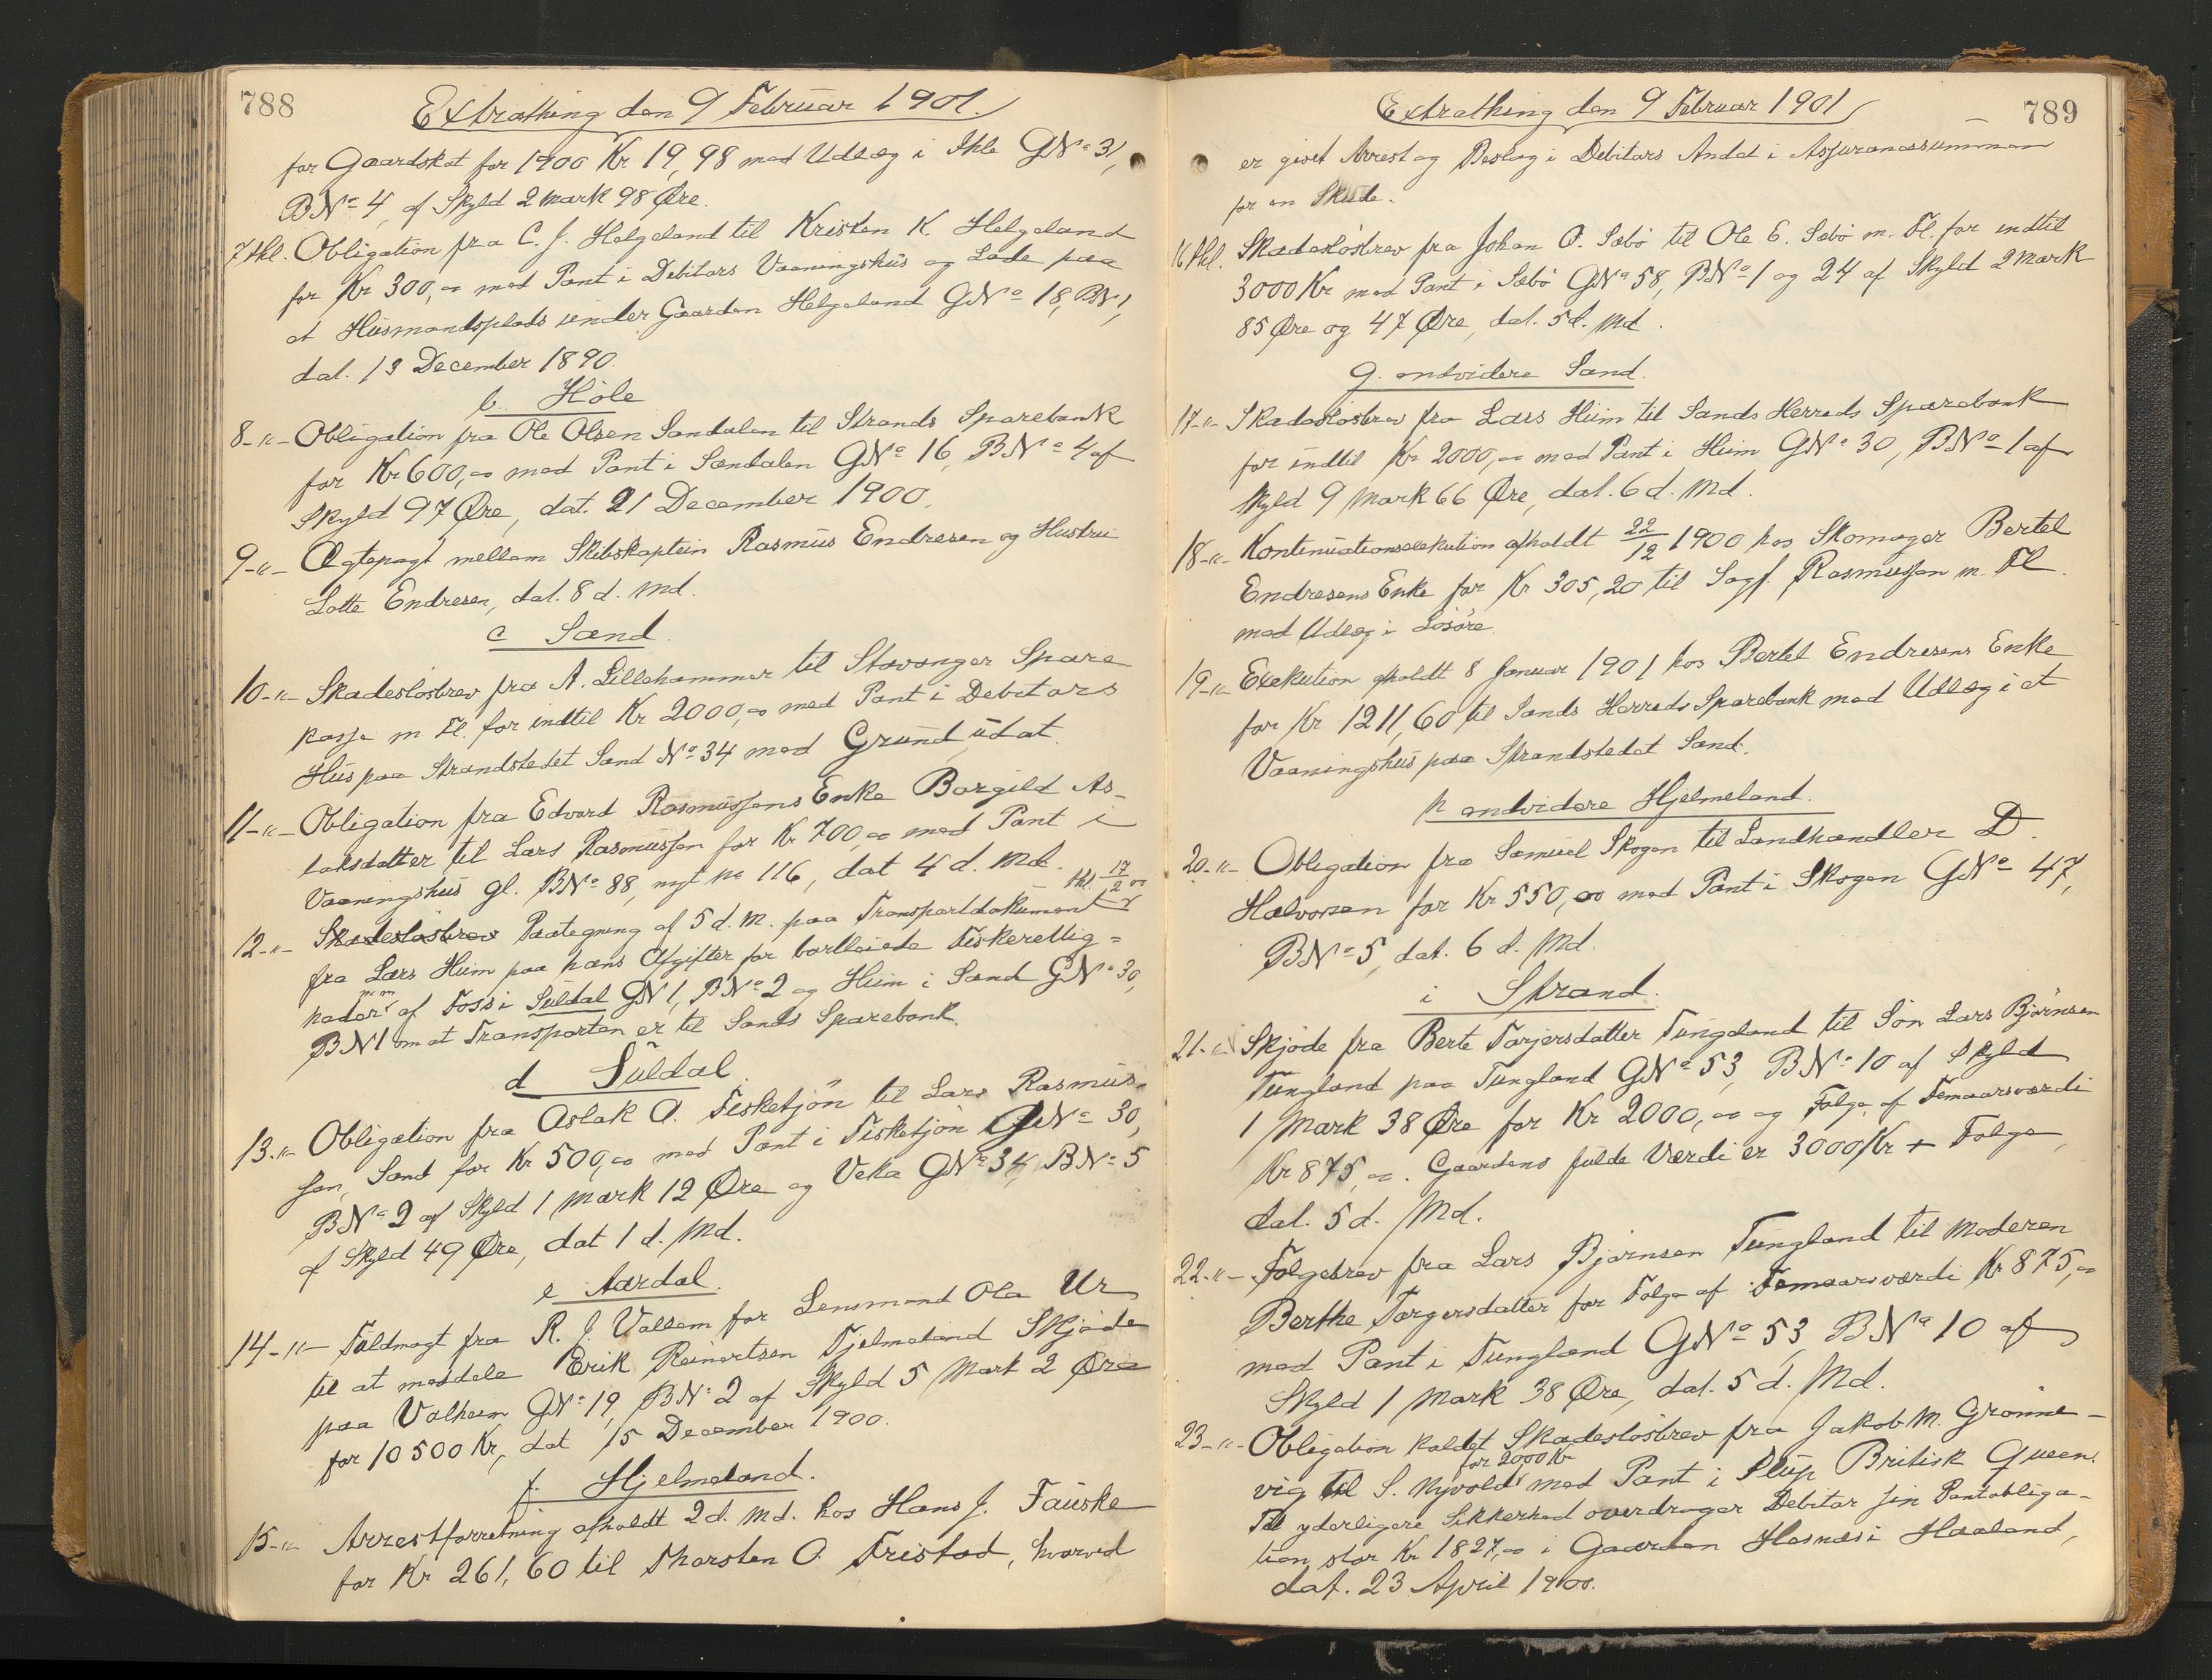 788
Extrathing den 9 Februar 1901.
for Gaardskat for 1900 Kr 19,98 med Udlæg i Ihle GNo 31,
BNo 4, af Skyld 2 mark 98 Øre.
7 thl. Obligation fra C. J. Helgeland til Kristen K. Helgeland
for Kr 300,00 med Pant i Debitors Vaaningshus og Lade paa
et Husmandsplads under Gaarden Helgeland GNo 18, BN 1,
dat. 13 December 1890.
b. Höle
8-"- Obligation fra Ole Olsen Sandalen til Strands Sparebank
for Kr 600,00 med Pant i Sandalen GNo 16, BNo 4 af
Skyld 97 Øre, dat. 21 December 1900.
9-"- Ægtepagt mellem Skibskaptein Rasmus Endresen og Hustru
Lotte Endresen, dat. 8 d. Md.
c Sand.
10-"- Skadesløsbrev fra A. Lillehammer til Stavanger Spare
kasse m Fl. for indtil Kr 2000,00 med Pant i Debitors
Hus paa Strandstedet Sand No 34 med Grund, udat.
11-"- Obligation fra Edvard Rasmussens Enke Borgild As-
laksdatter til Lars Rasmussen for Kr 700,00 med Pant i
Vaaningshus gl. BNo 88, nyt No 116, dat 4 d. Md.
thl 17/2 00
12-"- Skadesløsbrev Paategning af 5 d. M. paa Transportdokument
fra Lars Hiim paa hans Afgifter for bortleiede Fiskerettig=
heder m m af Foss i Suldal GN 1, BNo 2 og Hiim i Sand GNo 30,
BN 1 om at Transporten er til Sands Sparebank.
d Suldal.
13.-"- Obligation fra Aslak O. Fisketjön til Lars Rasmus-
sen, Sand for Kr 500,00 med Pant i Fisketjön GNo 30,
BNo 2 af Skyld 1 mark 12 Øre og Veka GNo 34, BNo 5
af Skyld 49 Øre, dat 1 d. Md.
e Aardal.
14-"- Fuldmagt fra R. J. Valheim for Lensmand Ola Ur
til at meddele Erik Reinertsen Fjelmeland Skjøde
paa Valheim GNo 19, BNo 2 af Skyld 5 Mark 2 Øre
for 10500 Kr, dat 15 December 1900.
f. Hjelmeland.
15-"- Arrestforretning afholdt 2 d. Md. hos Hans J. Fauske
for Kr 261,60 til Thorsten O. Tristad, hvorved
789
Extrathing den 9 Februar 1901
er givet Arrest og Beslag i Debitors Andel i Assurancesummen
for en Skude.
16 thl. Skadesløsbrev fra Johan O. Sæbö til Ole E. Sæbö m. Fl. for indtil
3000 Kr med Pant i Sæbö GNo 58, BNo 1 og 24 af Skyld 2 Mark
85 Øre og 47 Øre, dat. 5 d. Md.
g. endvidere Sand.
17-"- Skadesløsbrev fra Lars Hiim til Sands Herreds Sparebank
for indtil Kr 2000,00 med Pant i Hiim GNo 30, BNo 1 af
Skyld 9 Mark 66 Øre, dat. 6 d. Md.
18-"- Kontinuationsexekution afholdt 22/12 1900 hos Skomager Bertel
Endresens Enke for Kr 305,20 til Sagf. Rasmussen m. Fl.
med Udlæg i Løsøre
19-"- Exekution afholdt 8 Januar 1901 hos Bertel Endresens Enke
for Kr 1211,60 til Sands Herreds Sparebank med Udlæg i et
Vaaningshus paa Strandstedet Sand.
h endvidere Hjelmeland.
20-"- Obligation fra Samuel Skogen til Landhandler D.
Halvorsen for Kr 550,00 med Pant i Skogen GNo 47,
BNo 5, dat. 6 d. Md.
i Strand.
21-"- Skjøde fra Berte Torjersdatter Tungeland til Søn Lars Bjørnsen
Tungland paa Tungland GNo 53, BNo 10 af Skyld
1 Mark 38 Øre for Kr 2000,00 og Folge af Femaarsværdi
Kr 875,00. Gaardens fulde Værdi er 3000 Kr + Folge,
dat. 5 d. Md.
22-"- Folgebrev fra Lars Bjørnsen Tungland til Moderen
Berthe Torgersdatter for Folge af Femaarsværdi Kr 875,00
med Pant i Tungland GNo 53, BNo 10 af
Skyld 1 Mark 38 Øre, dat. 5 d. Md.
23-"- Obligation kaldet Skadesløsbrev fra Jakob M. Grønne-
vig til S. Nyvold for 2000 Kr med Pant i Slup Britisk Queen.
Til yderligere Sikkerhed overdrager Debitor sin Pantobliga-
tion stor Kr 1827,00 i Gaarden Hasnæs i Haaland,
dat. 23 April 1900.